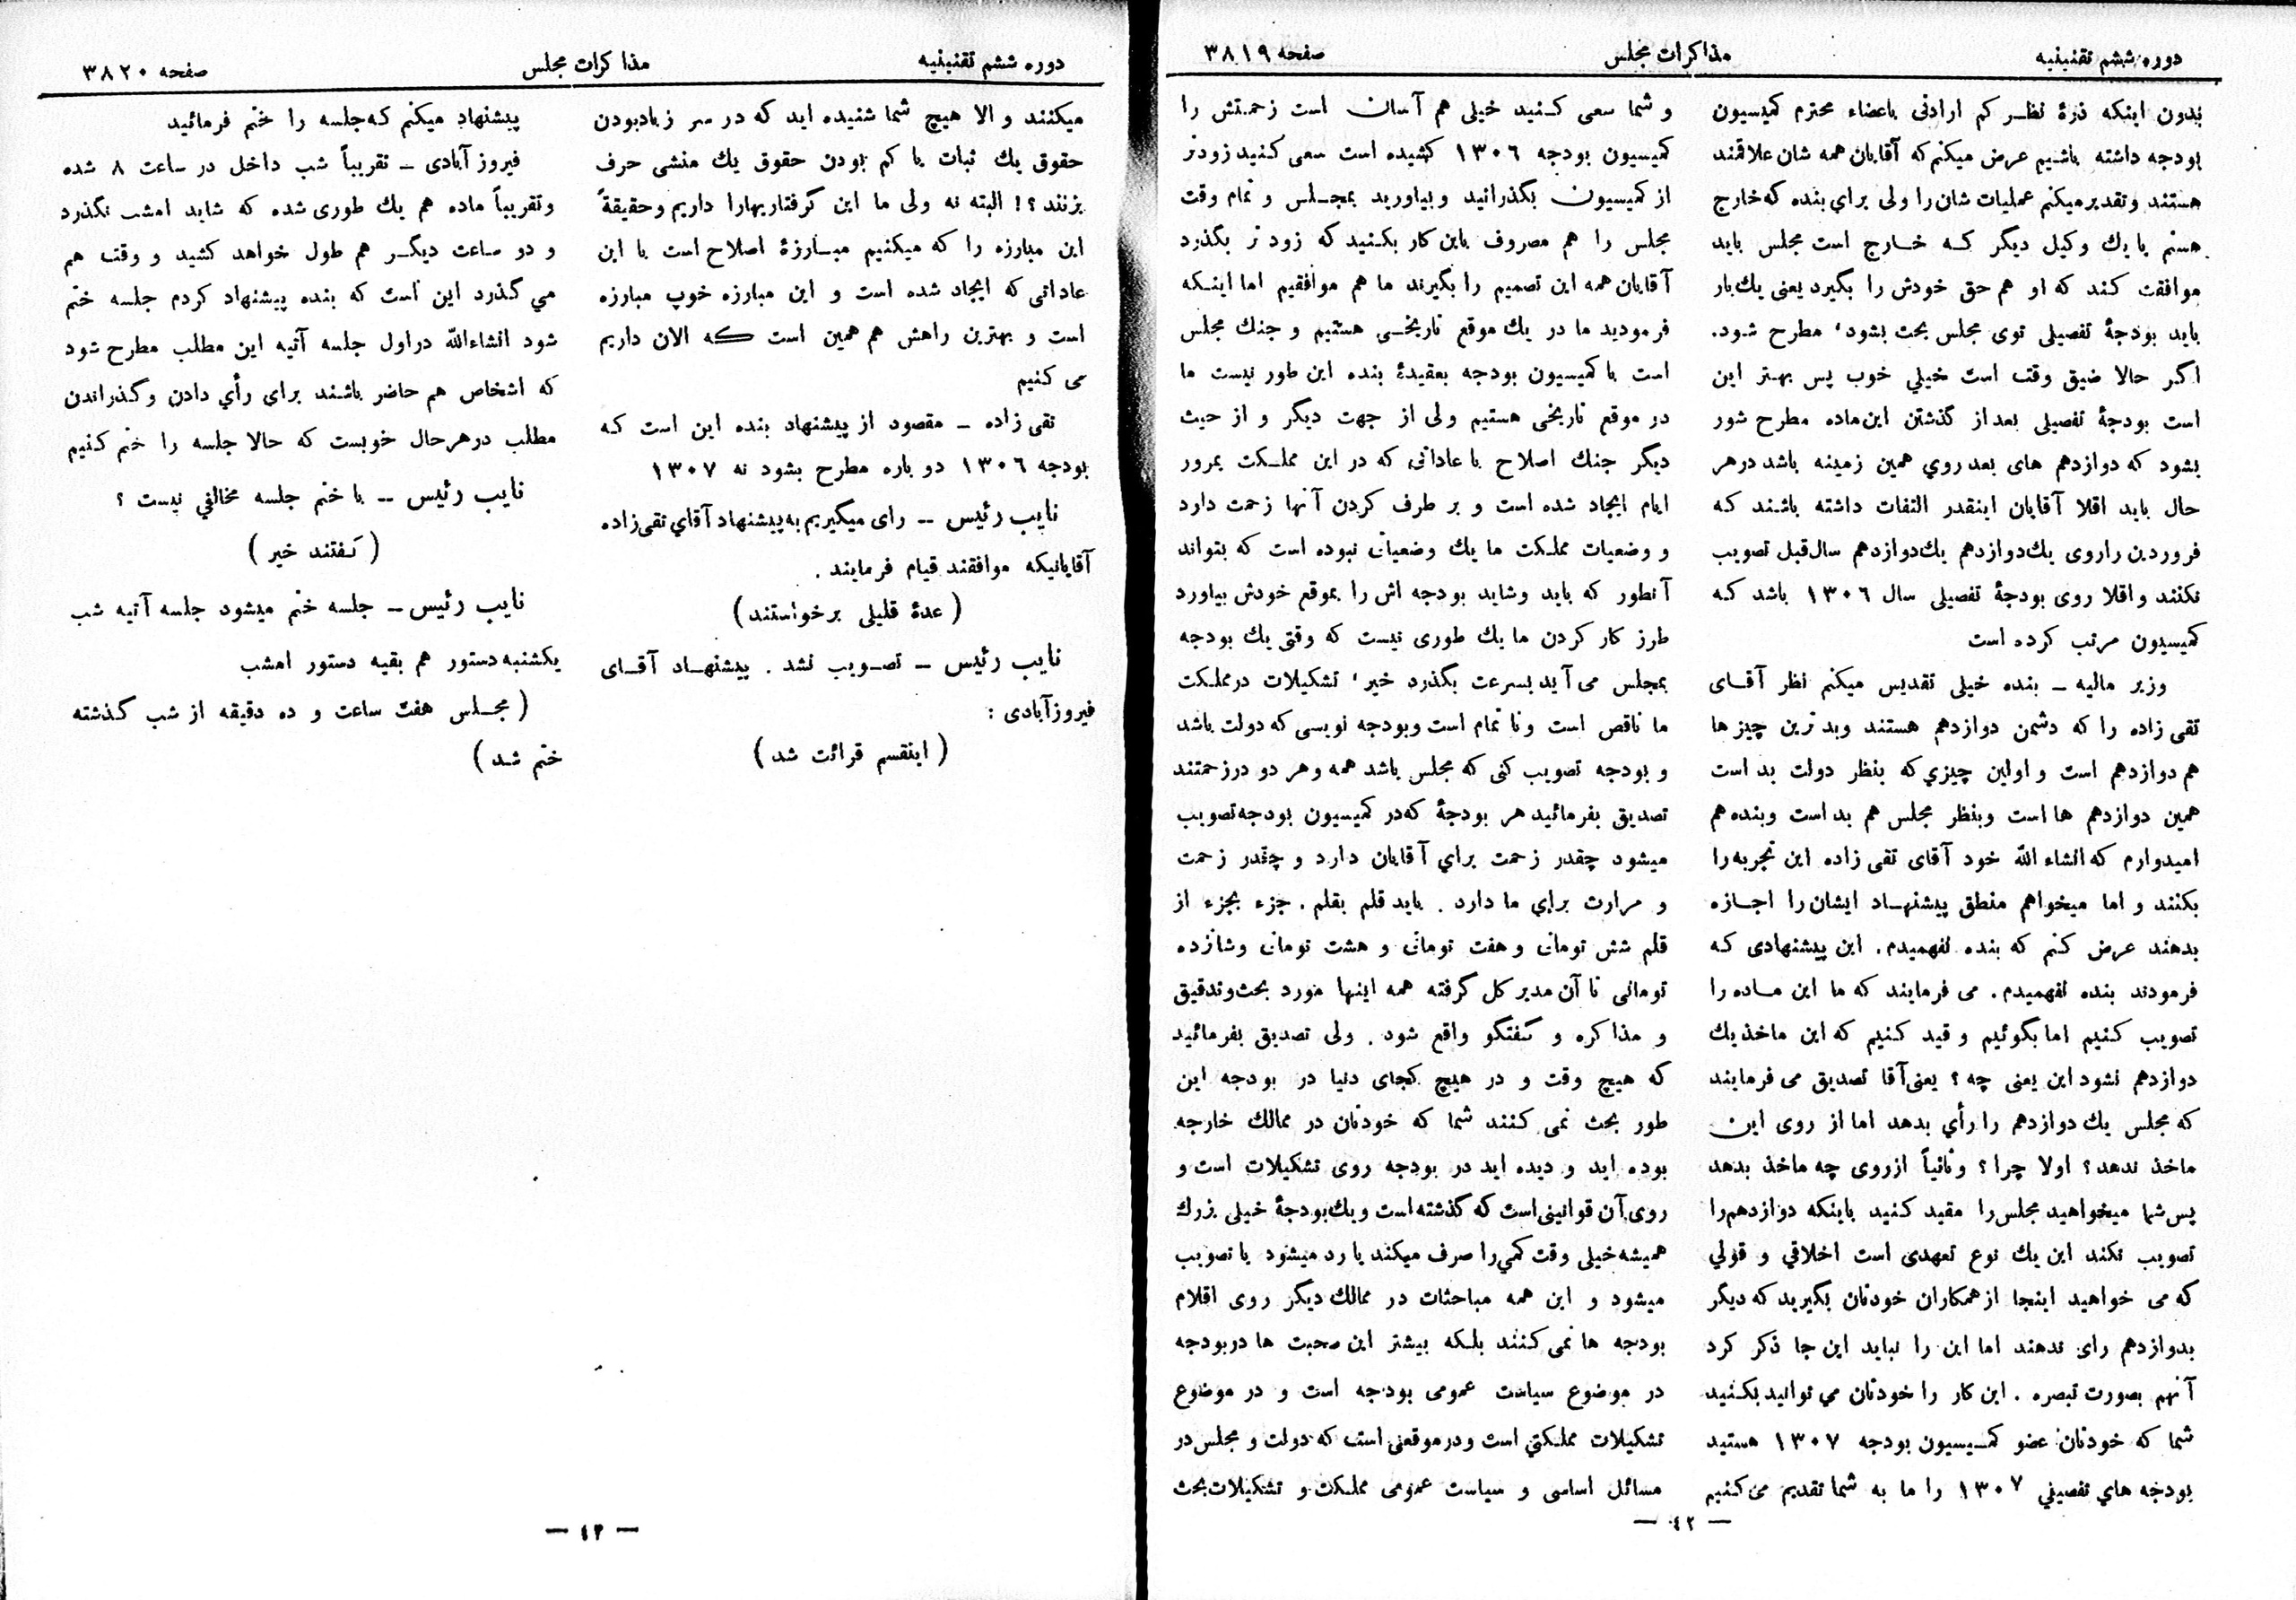 دوره ششم تقنینیه
مذاکرات مجلس
صفحه ۳۸۱۹
بدون اینکه ذرهٔ نظر کم ارادتی باعضاء محترم کمیسیون
بودجه داشته باشیم عرض میکنم که آقایان همه شان علاقمند
هستند و تقدیر میکنم عملیات شان را ولی برای بنده که خارج
هستم یا یك وکیل دیگر که خارج است مجلس باید
موافقت کند که او هم حق خودش را بگیرد یعنی یك بار
باید بودجهٔ تفصیلی توی مجلس بحث بشود، مطرح شود.
اگر حالا ضیق وقت است خیلی خوب پس بهتر این
است بودجهٔ تفصیلی بعد از گذشتن این ماده مطرح شور
بشود که دوازدهم های بعد روی همین زمینه باشد در هر
حال باید اقلا آقایان اینقدر التفات داشته باشند که
فروردین را روی یك دوازدهم یك دوازدهم سال قبل تصویب
نکنند و اقلا روی بودجهٔ تفصیلی سال ۱۳۰۶ باشد که
کمیسیون مرتب کرده است
وزیر مالیه ـ بنده خیلی تقدیس میکنم نظر آقای
تقی زاده را که دشمن دوازدهم هستند و بدترین چیز ها
هم دوازدهم است و اولین چیزی که بنظر دولت بد است
همین دوازدهم ها است و بنظر مجلس هم بد است و بنده هم
امیدوارم که انشاء الله خود آقای تقی زاده این تجربه را
بکنند و اما میخواهم منطق پیشنهاد ایشان را اجازه
بدهند عرض کنم که بنده نفهمیدم. این پیشنهادی که
فرمودند بنده نفهمیدم. می فرمایند که ما این ماده را
تصویب کنیم اما بگوئیم و قید کنیم که این ماخذ یك
دوازدهم نشود این یعنی چه؟ یعنی آقا تصدیق می فرمایند
که مجلس یك دوازدهم را رأی بدهد اما از روی این
ماخذ ندهد؟ اولا چرا؟ و ثانیاً از روی چه ماخذ بدهد
پس شما میخواهید مجلس را مقید کنید باینکه دوازدهم را
تصویب نکند این یك نوع تعهدی است اخلاقی و قولی
که می خواهید اینجا از همکاران خودتان بگیرید که دیگر
بدوازدهم رای ندهند اما این را نباید این جا ذکر کرد
آنهم بصورت تبصره. این کار را خودتان می توانید بکنید
شما که خودتان عضو کمیسیون بودجه ۱۳۰۷ هستید
بودجه های تفصیلی ۱۳۰۷ را ما به شما تقدیم می کنیم
و شما سعی کنید خیلی هم آسان است زحمتش را
کمیسیون بودجه ۱۳۰۶ کشیده است سعی کنید زودتر
از کمیسیون بگذرانید و بیاورید بمجلس و تمام وقت
مجلس را هم مصروف باین کار بکنید که زود تر بگذرد
آقایان همه این تصمیم را بگیرند ما هم موافقیم اما اینکه
فرمودید ما در یك موقع تاریخی هستیم و جنك مجلس
است با کمیسیون بودجه بعقیدهٔ بنده این طور نیست ما
در موقع تاریخی هستیم ولی از جهت دیگر و از حیث
دیگر جنك اصلاح با عاداتی که در این مملکت بمرور
ایام ایجاد شده است و بر طرف کردن آنها زحمت دارد
و وضعیات مملکت ما یك وضعیاتی نبوده است که بتواند
آنطور که باید و شاید بودجه اش را بموقع خودش بیاورد
طرز کار کردن ما یك طوری نیست که وقتی یك بودجه
بمجلس می آید بسرعت بگذرد خیر، تشکیلات در مملکت
ما ناقص است و نا تمام است و بودجه نویسی که دولت باشد
و بودجه تصویب کنی که مجلس باشد همه و هر دو در زحمتند
تصدیق بفرمائید هر بودجهٔ که در کمیسیون بودجه تصویب
میشود چقدر زحمت برای آقایان دارد و چقدر زحمت
و مرارت برای ما دارد. باید قلم بقلم. جزء بجزء از
قلم شش تومانی و هفت تومانی و هشت تومانی و شانزده
تومانی تا آن مدیر کل گرفته همه اینها مورد بحث و تدقیق
و مذاکره و گفتگو واقع شود. ولی تصدیق بفرمائید
که هیچ وقت و در هیچ کجای دنیا در بودجه این
طور بحث نمی کنند شما که خودتان در ممالك خارجه
بوده اید و دیده اید در بودجه روی تشکیلات است و
روی آن قوانینی است که گذشته است و یك بودجهٔ خیلی بزرك
همیشه خیلی وقت کمی را صرف میکند یا رد میشود یا تصویب
میشود و این همه مباحثات در ممالك دیگر روی اقلام
بودجه ها نمی کنند بلکه بیشتر این صحبت ها در بودجه
در موضوع سیاست عمومی بودجه است و در موضوع
تشکیلات مملکتی است و در موقعی است که دولت و مجلس در
مسائل اساسی و سیاست عمومی مملکت و تشکیلات بحث
— ٤۲ —
دوره ششم تقنینیه
مذاکرات مجلس
صفحه ۳۸۲۰
میکنند و الا هیچ شما شنیده اید که در سر زیاد بودن
حقوق یك ثبات یا کم بودن حقوق یك منشی حرف
بزنند؟! البته نه ولی ما این گرفتاریها را داریم و حقیقةً
این مبارزه را که میکنیم مبارزهٔ اصلاح است با این
عاداتی که ایجاد شده است و این مبارزه خوب مبارزه
است و بهترین راهش هم همین است که الان داریم
می کنیم
تقی زاده ـ مقصود از پیشنهاد بنده این است که
بودجه ۱۳۰۶ دو باره مطرح بشود نه ۱۳۰۷
نایب رئیس ـ رای میگیریم به پیشنهاد آقای تقی زاده
آقایانیکه موافقند قیام فرمایند.
(عدهٔ قلیلی برخواستند)
نایب رئیس ـ تصویب نشد. پیشنهاد آقای
فیروزآبادی:
(اینقسم قرائت شد)
پیشنهاد میکنم که جلسه را ختم فرمائید
فیروز آبادی ـ تقریباً شب داخل در ساعت ۸ شده
و تقریباً ماده هم یك طوری شده که شاید امشب نگذرد
و دو ساعت دیگر هم طول خواهد کشید و وقت هم
می گذرد این است که بنده پیشنهاد کردم جلسه ختم
شود انشاءالله در اول جلسه آتیه این مطلب مطرح شود
که اشخاص هم حاضر باشند برای رأی دادن و گذراندن
مطلب در هر حال خوبست که حالا جلسه را ختم کنیم
نایب رئیس ـ با ختم جلسه مخالفی نیست؟
(گفتند خیر)
نایب رئیس ـ جلسه ختم میشود جلسه آتیه شب
یکشنبه دستور هم بقیه دستور امشب
(مجلس هفت ساعت و ده دقیقه از شب گذشته
ختم شد)
— ٤۳ —